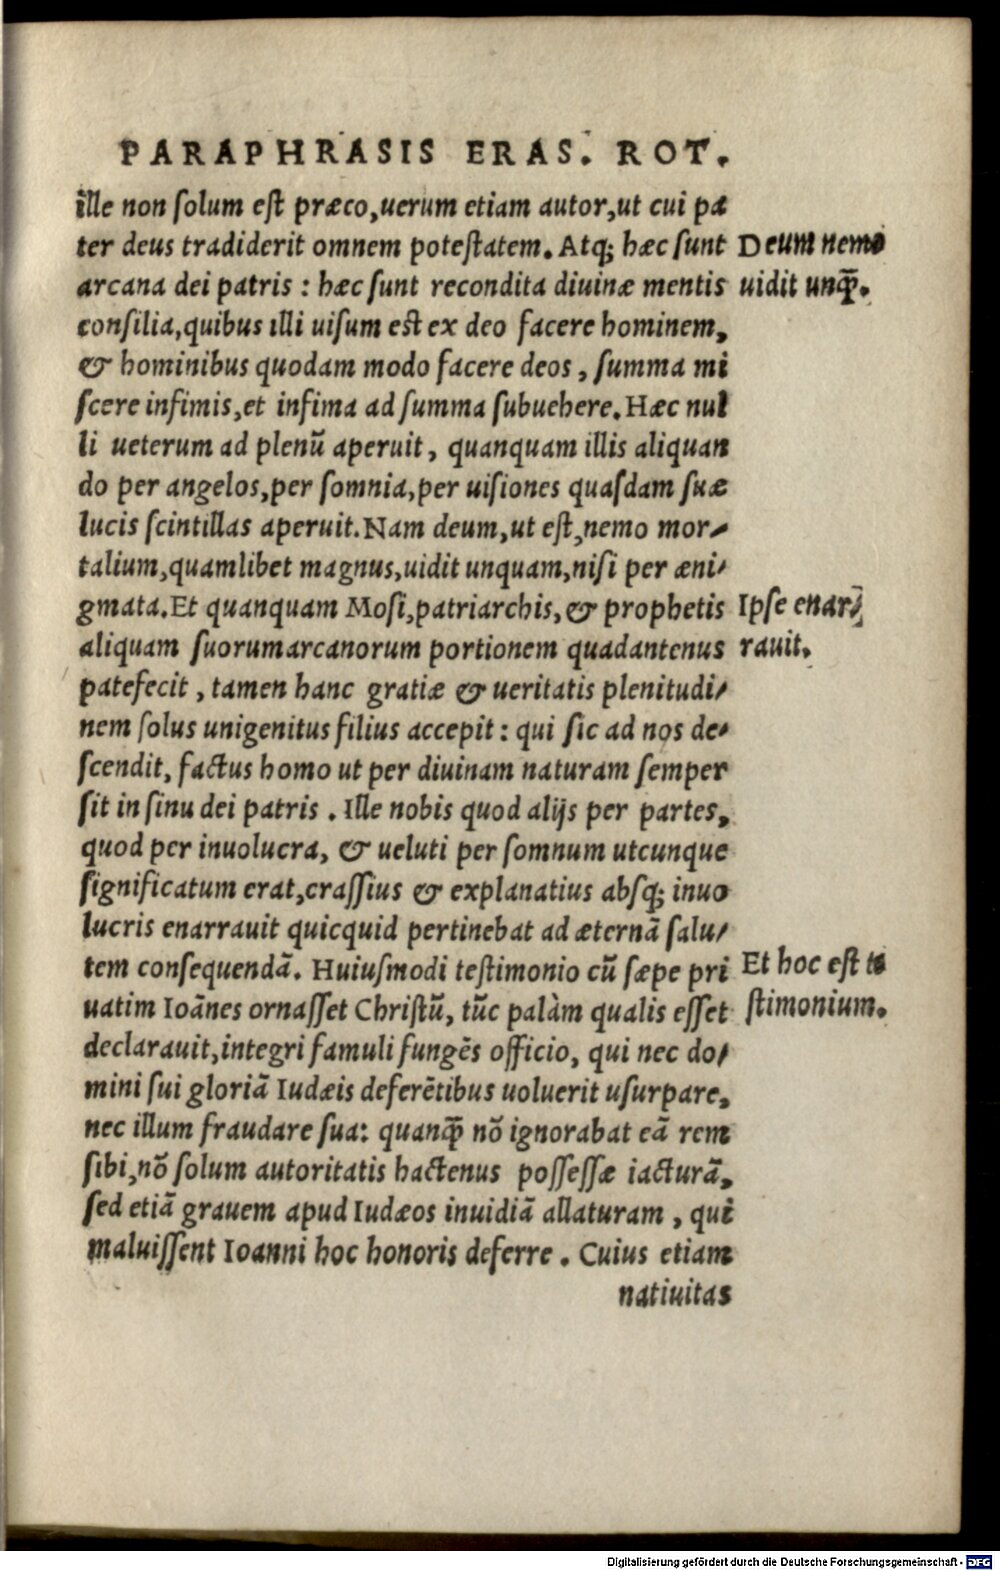 PARAPHRASIS ERAS. ROT.
ille non solum est præco, uerum etiam autor, ut cui pa
ter deus tradiderit omnem potestatem. Atq; hæc sunt
Deum nemo
arcana dei patris : hæc sunt recondita diuinæ mentis
uidit unq̃.
consilia, quibus illi uisum est ex deo facere hominem,
& hominibus quodam modo facere deos , summa mi
scere infimis, et infima ad summa subuehere. Hæc nul
li ueterum ad plenũ aperuit, quanquam illis aliquan
do per angelos, per somnia, per uisiones quasdam suæ
lucis scintillas aperuit. Nam deum, ut est, nemo mor-
talium, quamlibet magnus, uidit unquam, nisi per æni-
gmata. Et quanquam Mosi, patriarchis, & prophetis
Ipse enar-
aliquam suorumarcanorum portionem quadantenus
rauit.
patefecit , tamen hanc gratiæ & ueritatis plenitudi-
nem solus unigenitus filius accepit : qui sic ad nos de-
scendit, factus homo ut per diuinam naturam semper
sit in sinu dei patris . Ille nobis quod alijs per partes,
quod per inuolucra, & ueluti per somnum utcunque
significatum erat, crassius & explanatius absq; inuo
lucris enarrauit quicquid pertinebat ad æternã salu-
tem consequendã. Huiusmodi testimonio cũ sæpe pri
Et hoc est te
uatim Ioãnes ornasset Christũ, tũc palàm qualis esset
stimonium.
declarauit, integri famuli fungẽs officio, qui nec do-
mini sui gloriã Iudæis deferẽtibus uoluerit usurpare,
nec illum fraudare sua: quanq̃ nõ ignorabat eã rem
sibi, nõ solum autoritatis hactenus possessæ iacturã,
sed etiã grauem apud Iudæos inuidiã allaturam , qui
maluissent Ioanni hoc honoris deferre . Cuius etiam
natiuitas
Digitalisierung gefördert durch die Deutsche Forschungsgemeinschaft - DFG